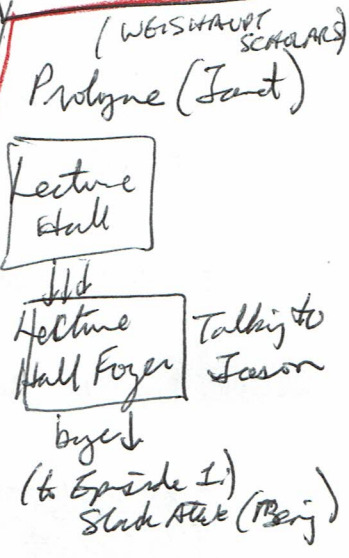 (WEISHAUPT
SCHOLARS)
Prologue (Janet)
Lecture
Hall
Lecture
Hall Foyer
Talking to
Jason
bye
(to Episode 1:)
Slade